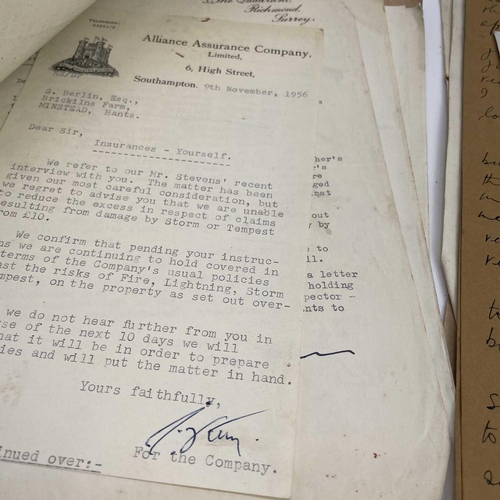 The Quadrant,
Richmond,
Surrey.
TELEPHONE:
Alliance Assurance Company,
Limited,
6, High Street,
Southampton. 9th November, 1956
S. Berlin, Esq.,
Brickilns Farm,
MINSTEAD, Hants.
Dear Sir,
Insurances - Yourself.
We refer to our Mr. Stevens' recent
interview with you. The matter has been
given our most careful consideration, but
we regret to advise you that we are unable
to reduce the excess in respect of claims
resulting from damage by Storm or Tempest
from £10.
We confirm that pending your instruc-
ns we are continuing to hold covered in
terms of the Company's usual policies
nst the risks of Fire, Lightning, Storm
mpest, on the property as set out over-
we do not hear further from you in
se of the next 10 days we will
hat it will be in order to prepare
ies and will put the matter in hand.
Yours faithfully,
For the Company.
nued over:-
her's
's
re
ged
hat
out
by
to
il.
a letter
holding
pector -
nts to